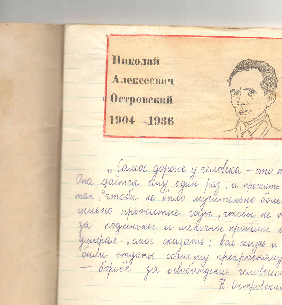 Николай
Алексеевич
Островский
1904 - 1936
„Самое дорогое у человека - это
Она дается ему один раз, и прожить
так, чтобы не было мучительно
цельно прожитые годы, чтобы не
за подленькое и мелочное прошлое
умирая, смог сказать: вся жизнь и
были отданы самому прекрасному
- борьбе за освобождение
Н. Островский